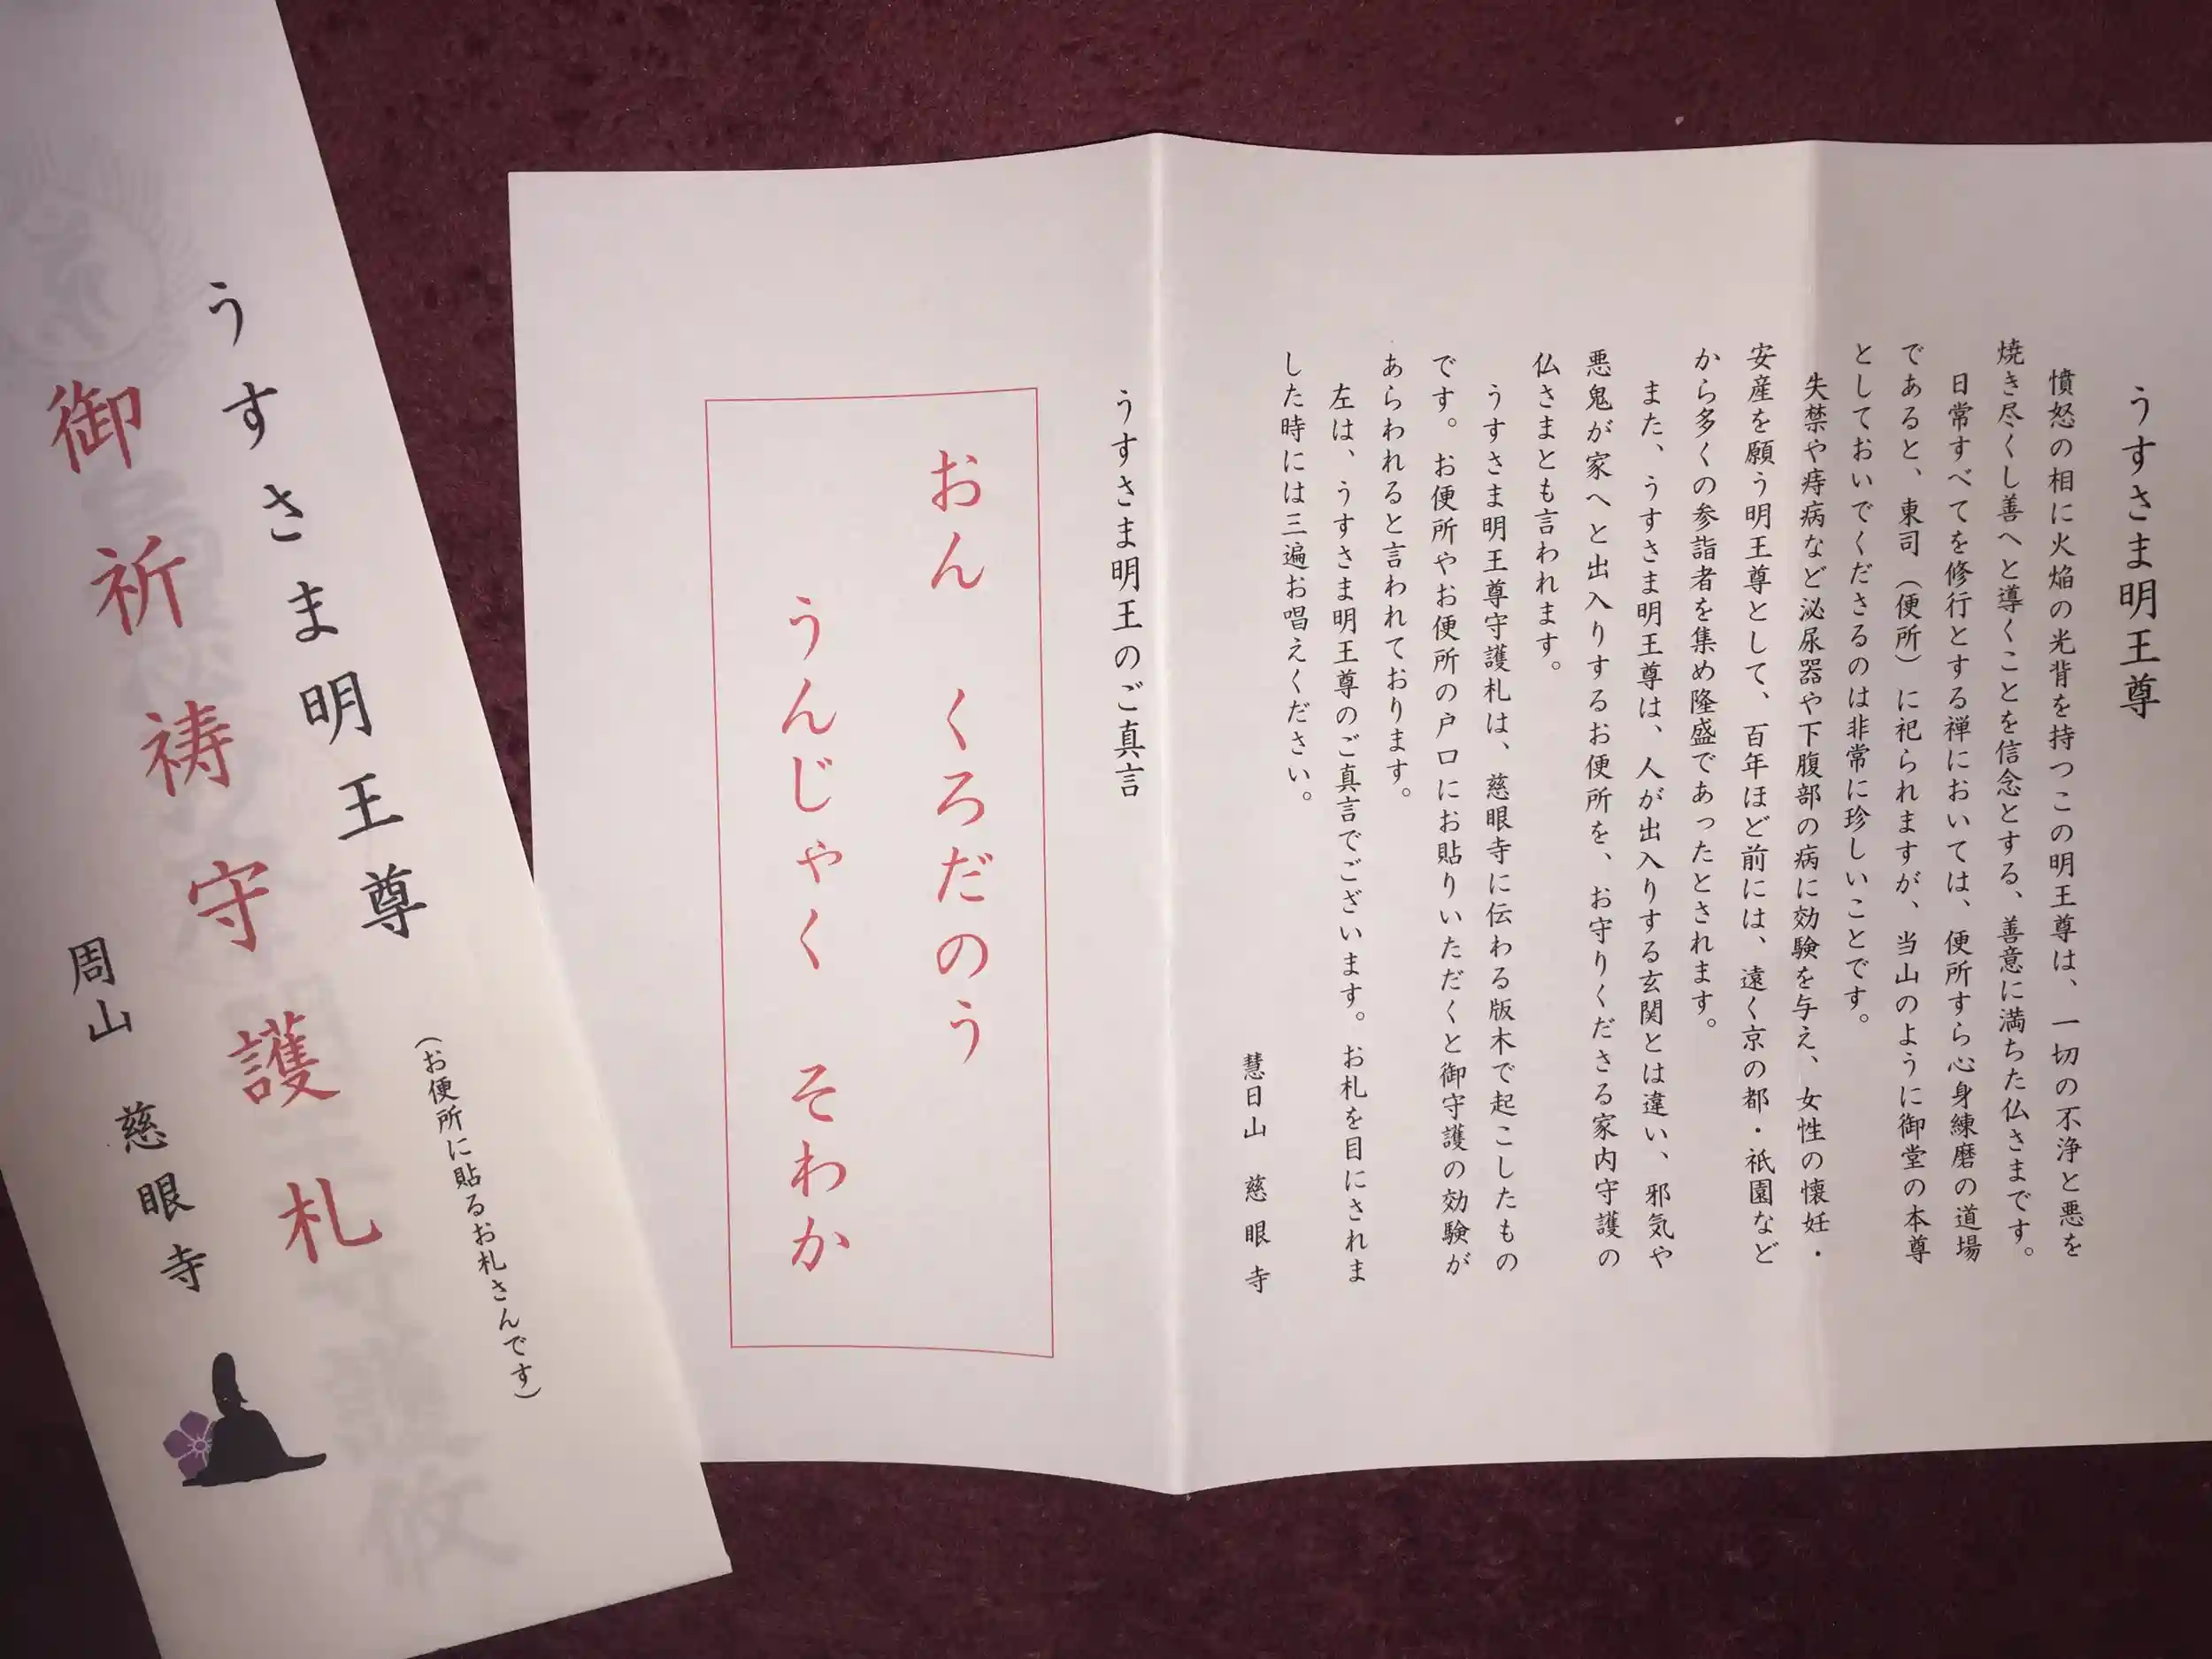 うすさま明王尊
憤怒の相に火焔の光背を持つこの明王尊は、一切の不浄と悪を
焼き尽くし善へと導くことを信念とする、善意に満ちた仏さまです。
日常すべてを修行とする禅においては、便所すら心身練磨の道場
であると、東司（便所）に祀られますが、当山のように御堂の本尊
としておいでくださるのは非常に珍しいことです。
失禁や痔病など泌尿器や下腹部の病に効験を与え、女性の懐妊・
安産を願う明王尊として、百年ほど前には、遠く京の都・祇園など
から多くの参詣者を集め隆盛であったとされます。
また、うすさま明王尊は、人が出入りする玄関とは違い、邪気や
悪鬼が家へと出入りするお便所を、お守りくださる家内守護の
仏さまとも言われます。
うすさま明王尊守護札は、慈眼寺に伝わる版木で起こしたもの
です。お便所やお便所の戸口にお貼りいただくと御守護の効験が
あらわれると言われております。
左は、うすさま明王尊のご真言でございます。お札を目にされま
した時には三遍お唱えください。
慧日山 慈眼寺
うすさま明王のご真言
おん くろだのう
うんじゃく そわか
（お便所に貼るお札さんです）
うすさま明王尊
御祈祷守護札
周山 慈眼寺